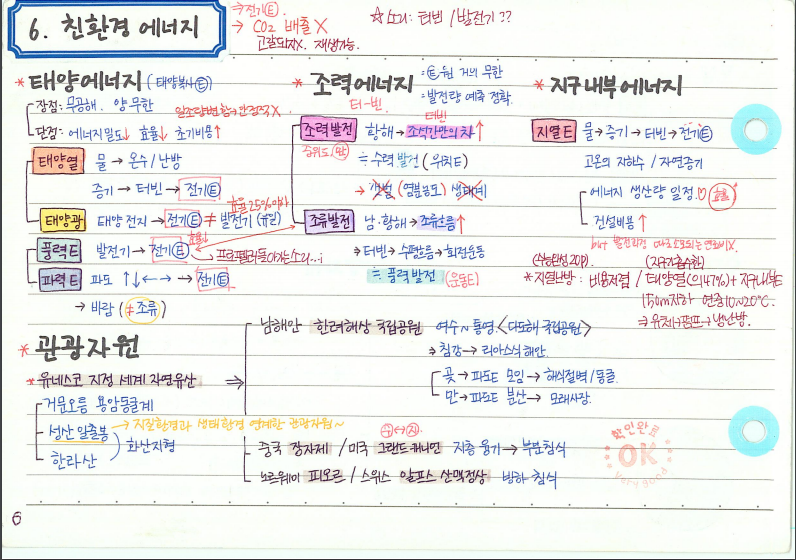 6. 친환경 에너지
⇒ 전기Ⓔ.
→ CO2 배출 X
고갈되지X. 재생가능.
☆소리: 터빈 / 발전기 ??
* 태양에너지 (태양복사Ⓔ)
장점: 무공해. 양 무한
단점: 에너지밀도↓ 효율↓ 초기비용↑
태양열 물 → 온수 / 난방
증기 → 터빈 → 전기Ⓔ
효율 25% 이상
태양광 태양 전지 → 전기Ⓔ ≠ 발전기 (유일)
풍력E 발전기 → 전기Ⓔ 효율↓
↳ 프로펠러 돌아가는 소리...
파력E 파도 ↑↓←→ → 전기Ⓔ
→ 바람 (≠ 조류)
* 조력에너지
: Ⓔ원 거의 무한
: 발전량 예측 정확.
터-빈.
터빈
조력발전 황해 → 조석간만의 차↑
≒ 수력 발전 (위치E)
→ 갯벌 (염분농도) 생태계
조류발전 남·황해 → 조류흐름↑
→ 터빈 → 수평흐름 → 회전운동
≒ 풍력발전 (운동E)
* 지구내부에너지
지열E 물 → 증기 → 터빈 → 전기Ⓔ
고온의 지하수 / 자연증기
에너지 생산량 일정.♡ 효율
건설비용↑
but 발전과정 따로 소모되는 연료비X.
* 지열난방: 비용저렴 / 태양열(의47%) + 지구내부E
150m지하 연중10~20℃.
⇒ 유체 → 펌프 → 냉난방.
* 관광자원
* 유네스코 지정 세계 자연유산 ⇒
거문오름 용암동굴계
성산 일출봉 → 지질환경과 생태환경 연계한 관광자원~
한라산
화산지형
남해안 한려해상 국립공원 여수~통영 <다도해 국립공원>
⇒ 침강 → 리아스식 해안.
곶 → 파도E 모임 → 해식절벽/동굴.
만 → 파도E 분산 → 모래사장.
중국 장자제 / 미국 그랜드 캐니언 지층 융기 → 부분침식
노르웨이 피오르 / 스위스 알프스 산맥정상 빙하 침식
확인완료
OK
Very good
6